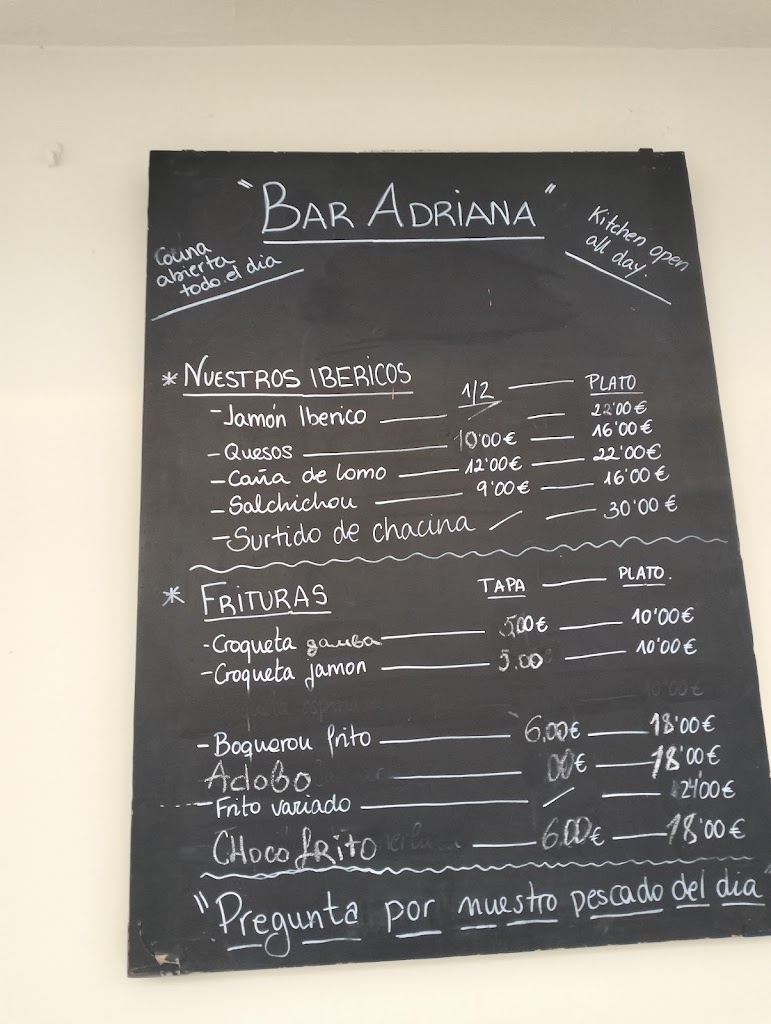 "BAR ADRIANA"
Cocina abierta todo el dia
Kitchen open all day.
* NUESTROS IBERICOS 1/2 — PLATO
- Jamón Iberico — / — 22'00€
- Quesos — 10'00€ — 16'00€
- Caña de lomo — 12'00€ — 22'00€
- Salchichou — 9'00€ — 16'00€
- Surtido de chacina / — 30'00€
* FRITURAS TAPA — PLATO.
- Croqueta gamba — 5,00€ — 10'00€
- Croqueta jamon — 5.00 — 10'00€
10'00€
- Boquerou frito — 6,00€ — 18'00€
Adobo — 00€ — 18'00€
- Frito variado — / — 24'00€
CHOCO fRITO — 6.00€ — 18'00€
"Pregunta por nuestro pescado del dia"